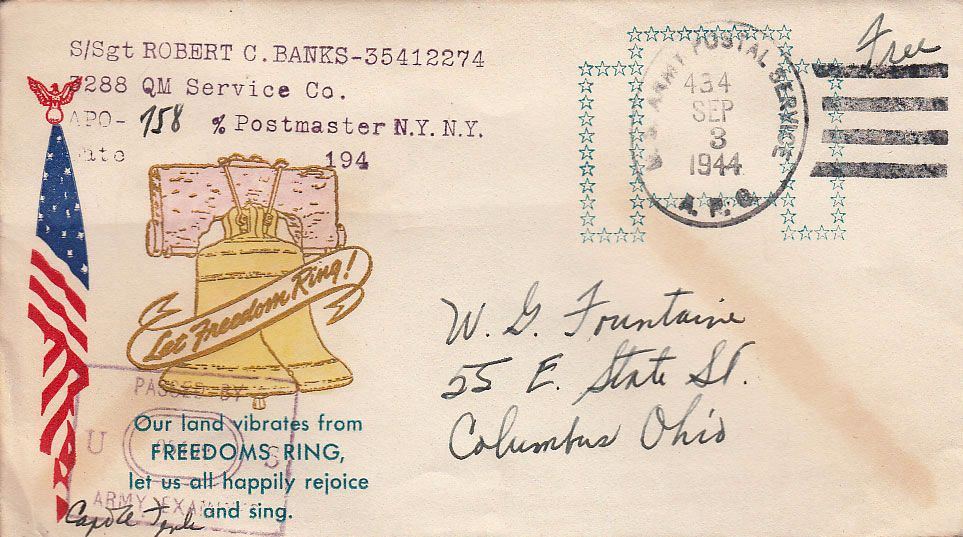 S/Sgt ROBERT C. BANKS-35412274
3288 QM Service Co.
APO- 758 % Postmaster N.Y. N.Y.
Date 194
Free
U.S. ARMY POSTAL SERVICE
434
SEP
3
1944
A.P.O.
Let Freedom Ring!
W. G. Fountaine
55 E. State St.
Columbus Ohio
PASSED BY
U S
ARMY EXAMINER
Our land vibrates from
FREEDOMS RING,
let us all happily rejoice
and sing.